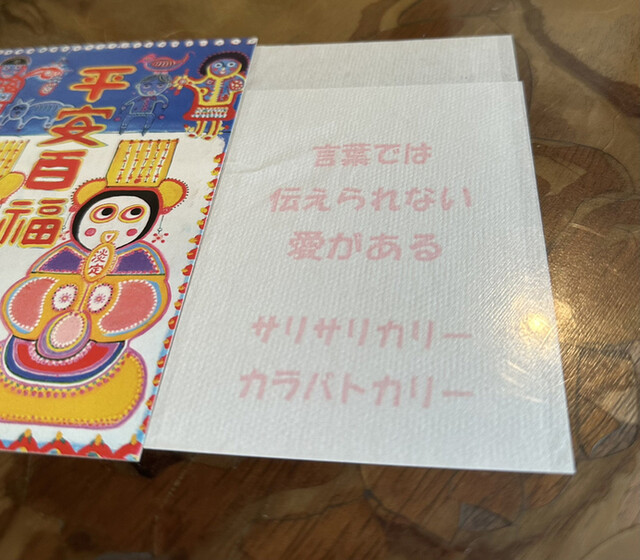 平安百福
淡定
言葉では
伝えられない
愛がある
サリサリカリー
カラバトカリー